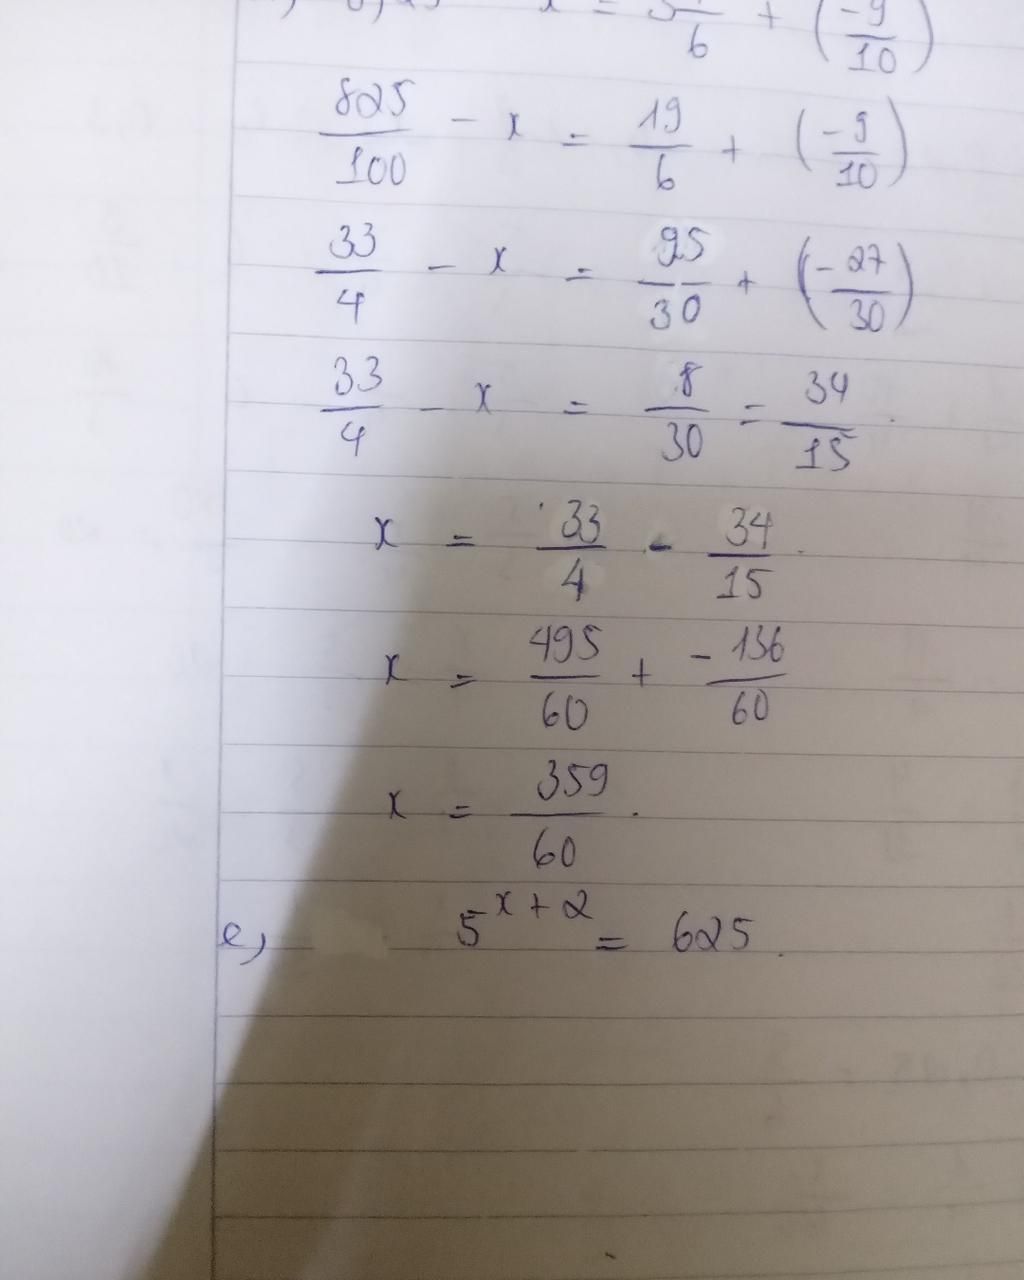 x = 3 1/6 + (-9/10)
825/100 - x = 19/6 + (-9/10)
33/4 - x = 95/30 + (-27/30)
33/4 - x = 8/30 = 34/15.
x = 33/4 - 34/15.
x = 495/60 + -136/60
x = 359/60.
e, 5^(x+2) = 625.